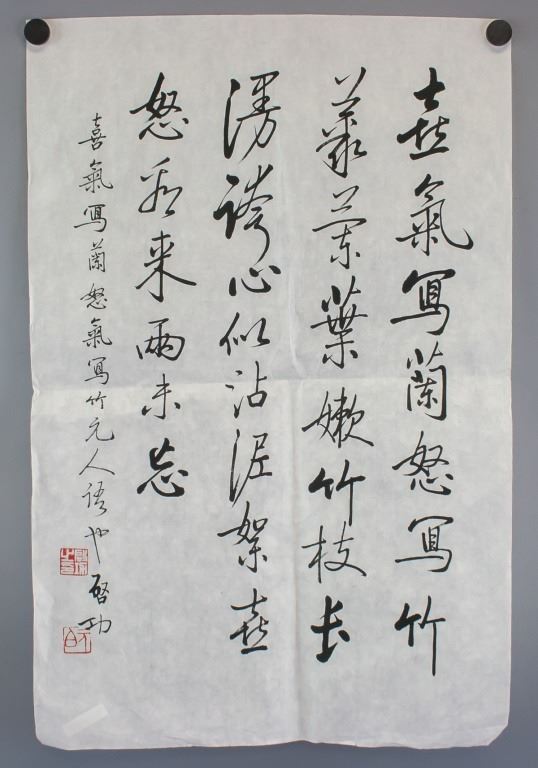 喜氣寫蘭怒寫竹
叢蘭葉嫩竹枝長
漫誇心似沾泥絮喜
怒看来兩未忘
喜氣寫蘭怒氣寫竹元人語也啓功